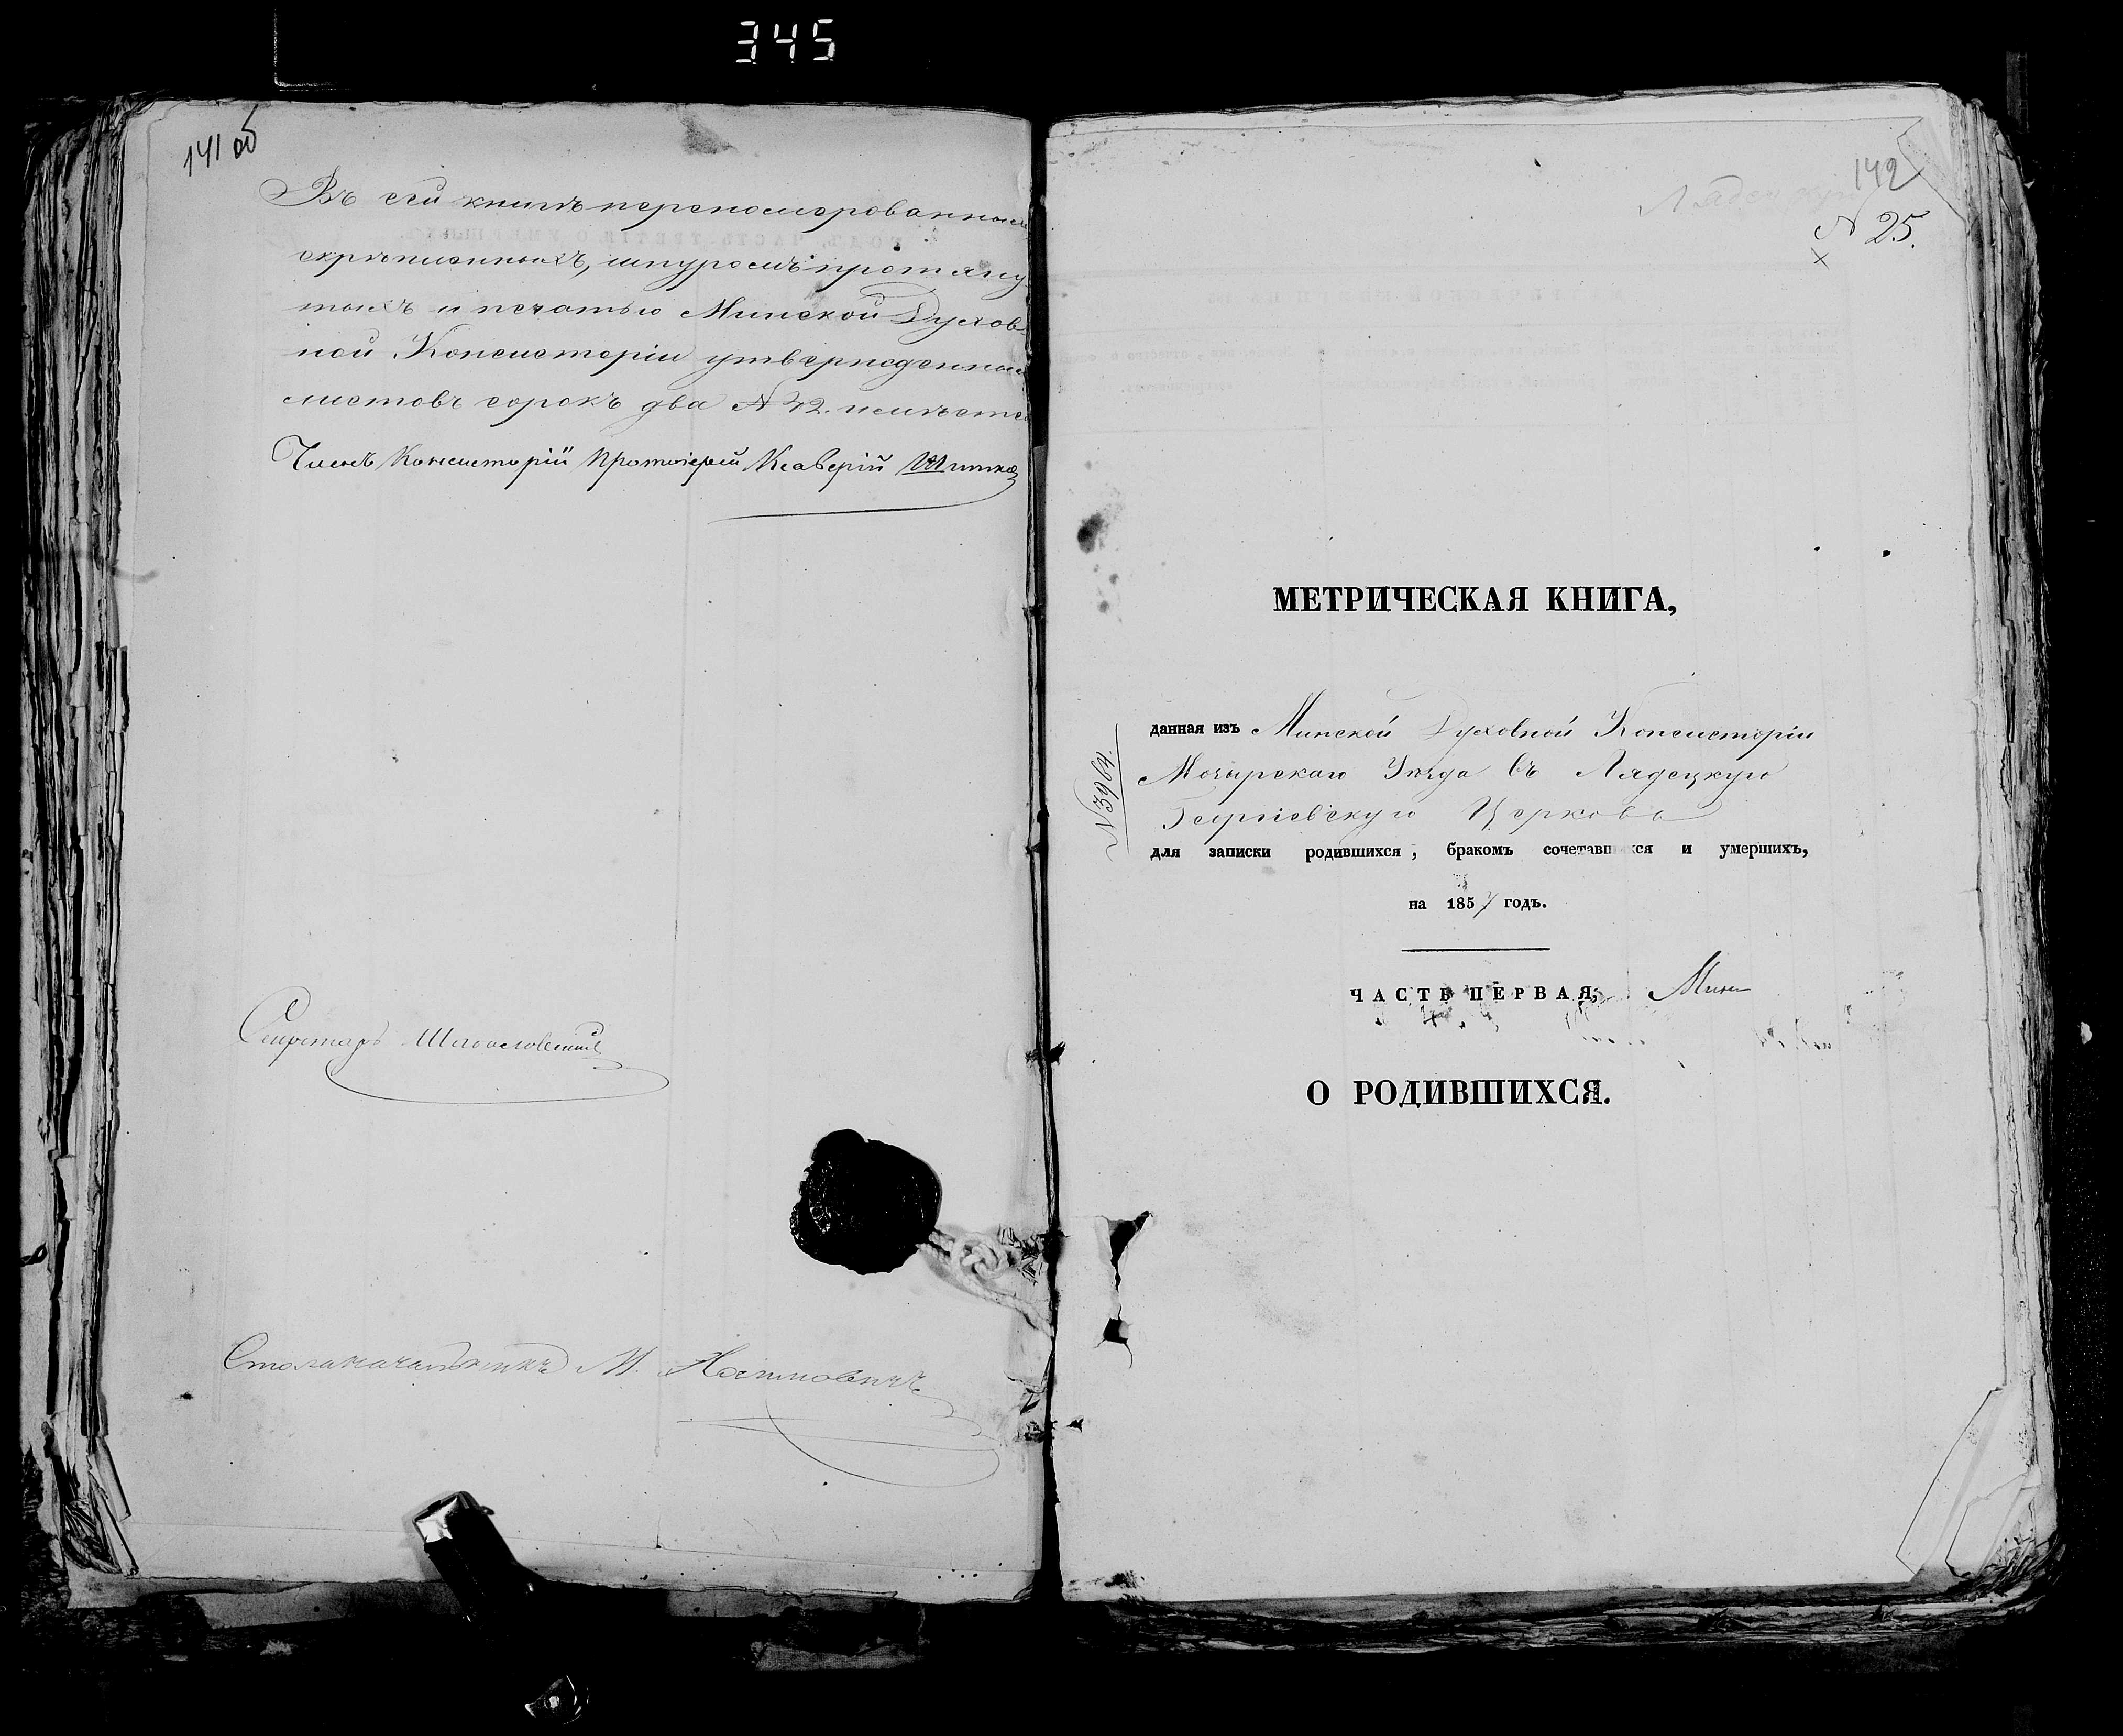 345
141 об
Въ сей книгѣ перенумерованныхъ
скрѣпленныхъ, шнуромъ протяну
тыхъ и печатью Минской Духов
ной Консисторіи утвержденныхъ
листовъ сорокъ два № 42. имѣется
Членъ Консисторіи Протоіерей Ксаверій
Секретарь
Столоначальникъ М.
142
Лядецкую
№ 25.
МЕТРИЧЕСКАЯ КНИГА,
данная изъ Минской Духовной Консисторіи
Мозырскаго Уѣзда въ Лядецкую
Георгіевскую Церковь
для записки родившихся, бракомъ сочетавшихся и умершихъ,
на 1857 годъ.
ЧАСТЬ ПЕРВАЯ,
О РОДИВШИХСЯ.
№ 3664.